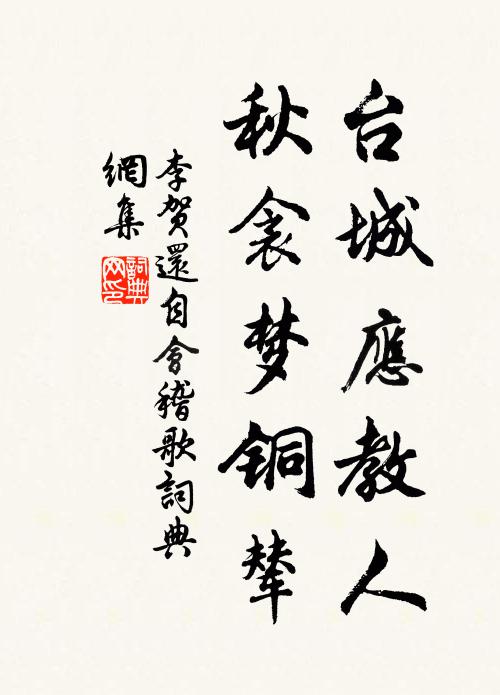 台城應教人
秋衾梦铜辇
李賀還自會稽歌詞典
網集
詞典
网印